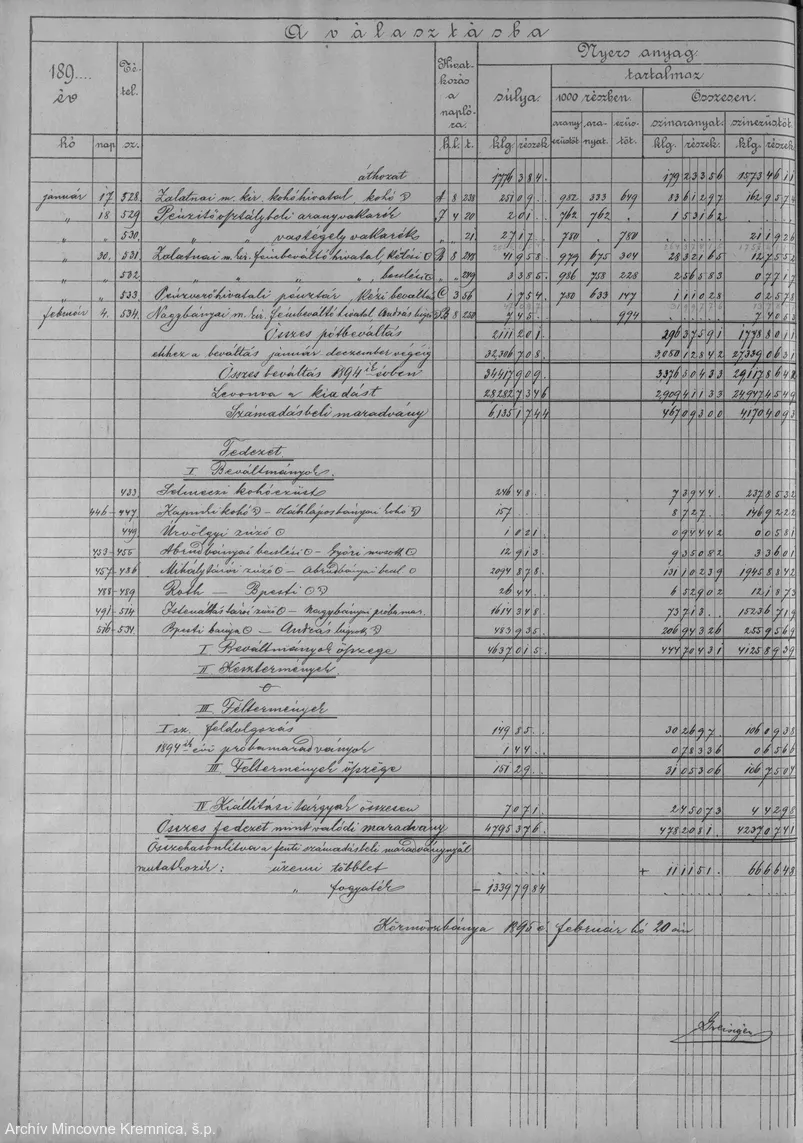 A választásba
Nyers anyag
189.... év
Tétel.
Hivatkozás a naplóra.
súlya
tartalmaz
1000 részben.
Összesen.
aranyezüstöt
aranyat.
ezüstöt.
színaranyat.
színezüstöt.
hó nap sz. k. l. t. klg. részek klg. részek. klg. részek.
áthozat 1776 384. 179 23356 1573 4611
január 17 528. Zalatnai m. kir. kohóhivatal, kohó A 8 238 251 09. 982 333 649 8 361297 162 9574
„ 18 529 Pénzitőosztálybeli aranyvakarék 4 20 201. 762 762 . 153162
„ „ 530. „ „ vastégely vakarék „ „ 21. 2717. 780 . 780 . 21 1926
„ 30. 531. Zalatnai m. kir. fémbeváltó hivatal, B 8 41958 979 675 304 28 32165 12 755
„ „ 532. „ „ „ 3385. 986 758 228 2 56583 0 7717
„ „ 533. Pénzverőhivatali pénztár, kézi beváltás C 3 56 1754. 780 633 147 1 11028 0 2578
február 4. 534. Nagybányai m. kir. fémbeváltó hivatal András B 8 250 745. 994 7 4053
Összes pótbeváltás 2111 201. 296 37591 1778 8011
ehhez a beváltás január deczember végéig 32,306 708. 3,050 12842 27339 0631
Összes beváltás 1894ik évben 34417 909. 3,376 50433 29,117 8642
Levonva a kiadást 28282 7346 2,909 41133 24947 4549
Számadásbeli maradvány 6,135 1744 467 09300 4170 4093
Fedezet.
I Beváltmányok.
433. Selmeczi kohóezüst 246 48. 7 3944 237 8532
446 – 447 Kapniki kohó – oláhláposbányai kohó 157 8 727. 146 9222
449. Úrvölgyi zúzó 1021. 0 94442 0 0581
453 – 455 Abrudbányai – Győri mosott 12913. 9 35082 3 3601
457 – 486 Mihálytárói zúzó – Abrudbányai 2094 878. 131 10239 1945 8842
488 – 489 Roth – Bpesti 2644. 6 52902 12 1873
491 – 514 Istenáltás tárói zúzó – Nagybányai próba mar. 1614 348. 73 718. 1523 6719
516 – 534 Bpesti – András 483 935. 206 94326 255 9569
I Beváltmányok összege 4637 015. 444 70431 4125 8939
II Késztermények
0
III Féltermények
I sz. feldolgozás 149 85. 30 2697 106 0938
1894ik évi próbamaradványok 144. 0 78336 0 6566
III Féltermények összege 151 29. 31 05306 106 7504
IV Kiállítási tárgyak összesen 7 071. 2 45073 4 4298
Összes fedezet mint valódi maradvány 4795 376. 478 2081. 4237 0741
Összehasonlítva a fenti számadásbeli maradványnyal
mutatkozik: üzemi többlet + 11 1151. 66 6648
„ fogyaték – 1339 7984
Körmöczbánya 1895 évi február hó 20 án
Greisiger
Archív Mincovne Kremnica, š.p.